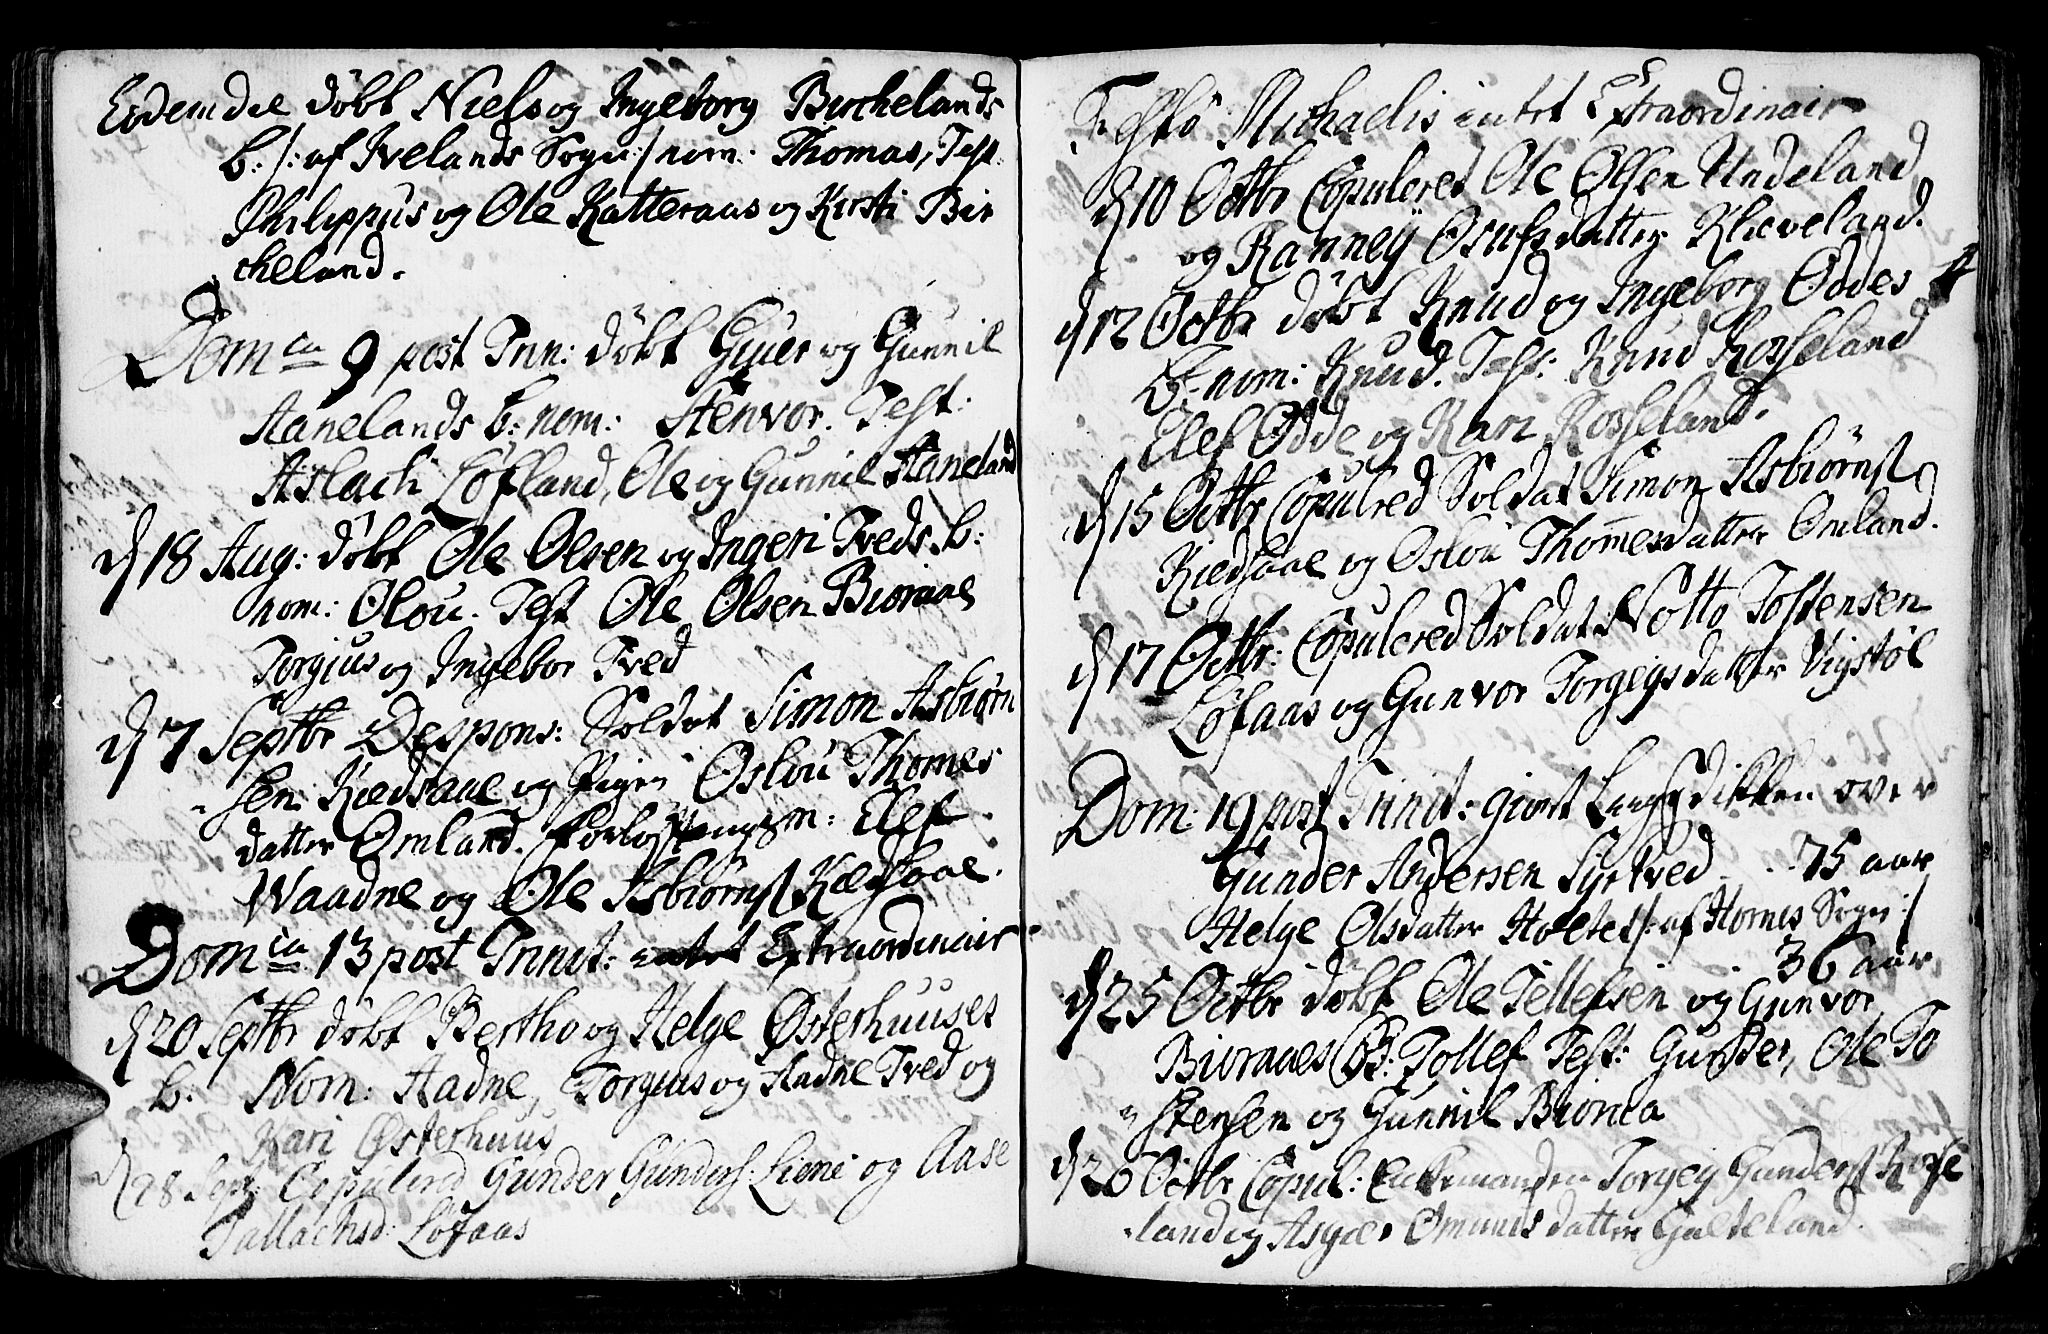 Eodem die döbt Niels og Ingeborg Birchelands
b: /: af Ivelands Sogn :/ nom. Thomas, Test:
Philippus og Ole Katteraas og Kirsti Bir
cheland.
Dom ca 9 post Trin: döbt Giuer og Gunnil
Aanelands b: nom: Stenvor. Test:
Aslach Löfland, Ole og Gunnil Aaneland
d 18 Aug: döbt Ole Olsen og Ingeri Tveds b:
nom: Olou. Test Ole Olsen Bioraae
Torgius og Ingebor Tved
d 7 Septbr Despons: Soldat Simon Asbiörn
sen Kiedsaae og Pigen Oslou Thomes
datter Omland. Forlöftningsm: Elef
Waadne og Ole Asbiörns Kiedsaae.
Dom ca 13 post Trinit: intet Extraordinair
d 20 Septbr döbt Bertho og Helge Østerhuuses
b: Nom: Aadne, Torgius og Aadne Tved og
Kari Østerhuus
d 28 Sept Copulered Gunder Gunders: Liene og Aase
Tallachsd: Löfaas
Festo Michaelis intet Extraordinair
d 10 Octbr Copuleret Ole Olsen Undeland
og Ranney Osufsdatter Klæveland.
d 12 Octbr döbt Knud og Ingeborg Oddes
B: nom: Knud. Test: Knud Rosseland
Elef Odde og Kari Rosseland.
d 15 Octbr Copulred Soldat Simon Asbiörns
Kiedsaae og Oslou Thomesdatter Omland.
d 17 Octbr: Copulered Soldat Notto Tostensen
Löfaas og Gunvor Torgeigsdatter Vigstöl
Dom: 19 post Trinit: giort over
Gunder Andersen Syrtved. 75 aar
Helge Olsdatter Holtet /: af Hornes Sogn :/
36 aar
d 25 Octbr döbt Ole Tellefsen og Gunvor
Bioraaes B: Tollef Test: Gunder, Ole To
stensen og Gunnil Bioraa
d 26 Octbr Copul: Enkemanden Torgeg Gunders Rosse
land og Asgier Omunds datter Galteland.